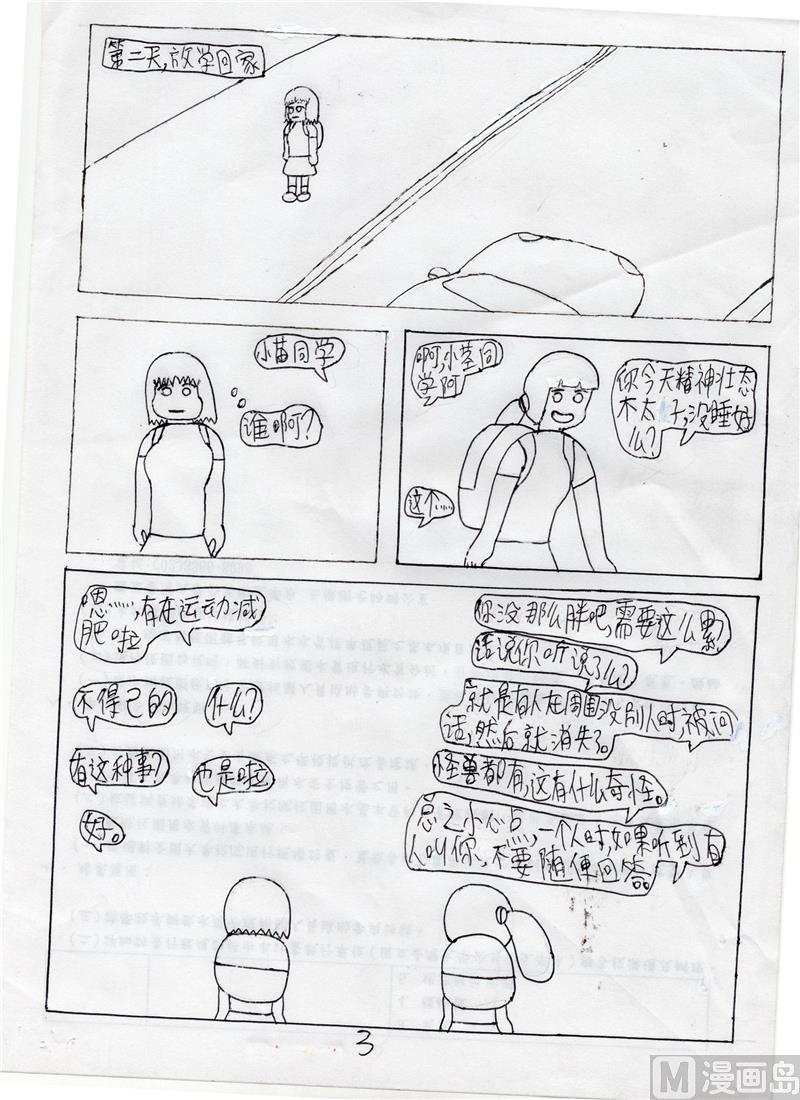 第二天,放学回家
小苗同学
谁啊?
啊,小茎同
学阿
你今天精神壮态
木太子,没睡好
么?
这个……
嗯……,有在运动减
肥啦
你没那么胖吧,需要这么累
话说你听说了么?
不得已的
什么?
就是有人在周围没别人时,被问
话,然后就消失了。
有这种事?
也是啦
怪兽都有,这有什么奇怪。
好。
总之小心点……,一个人时,如果听到有
人叫你,不要随便回答。
3
M 漫画岛